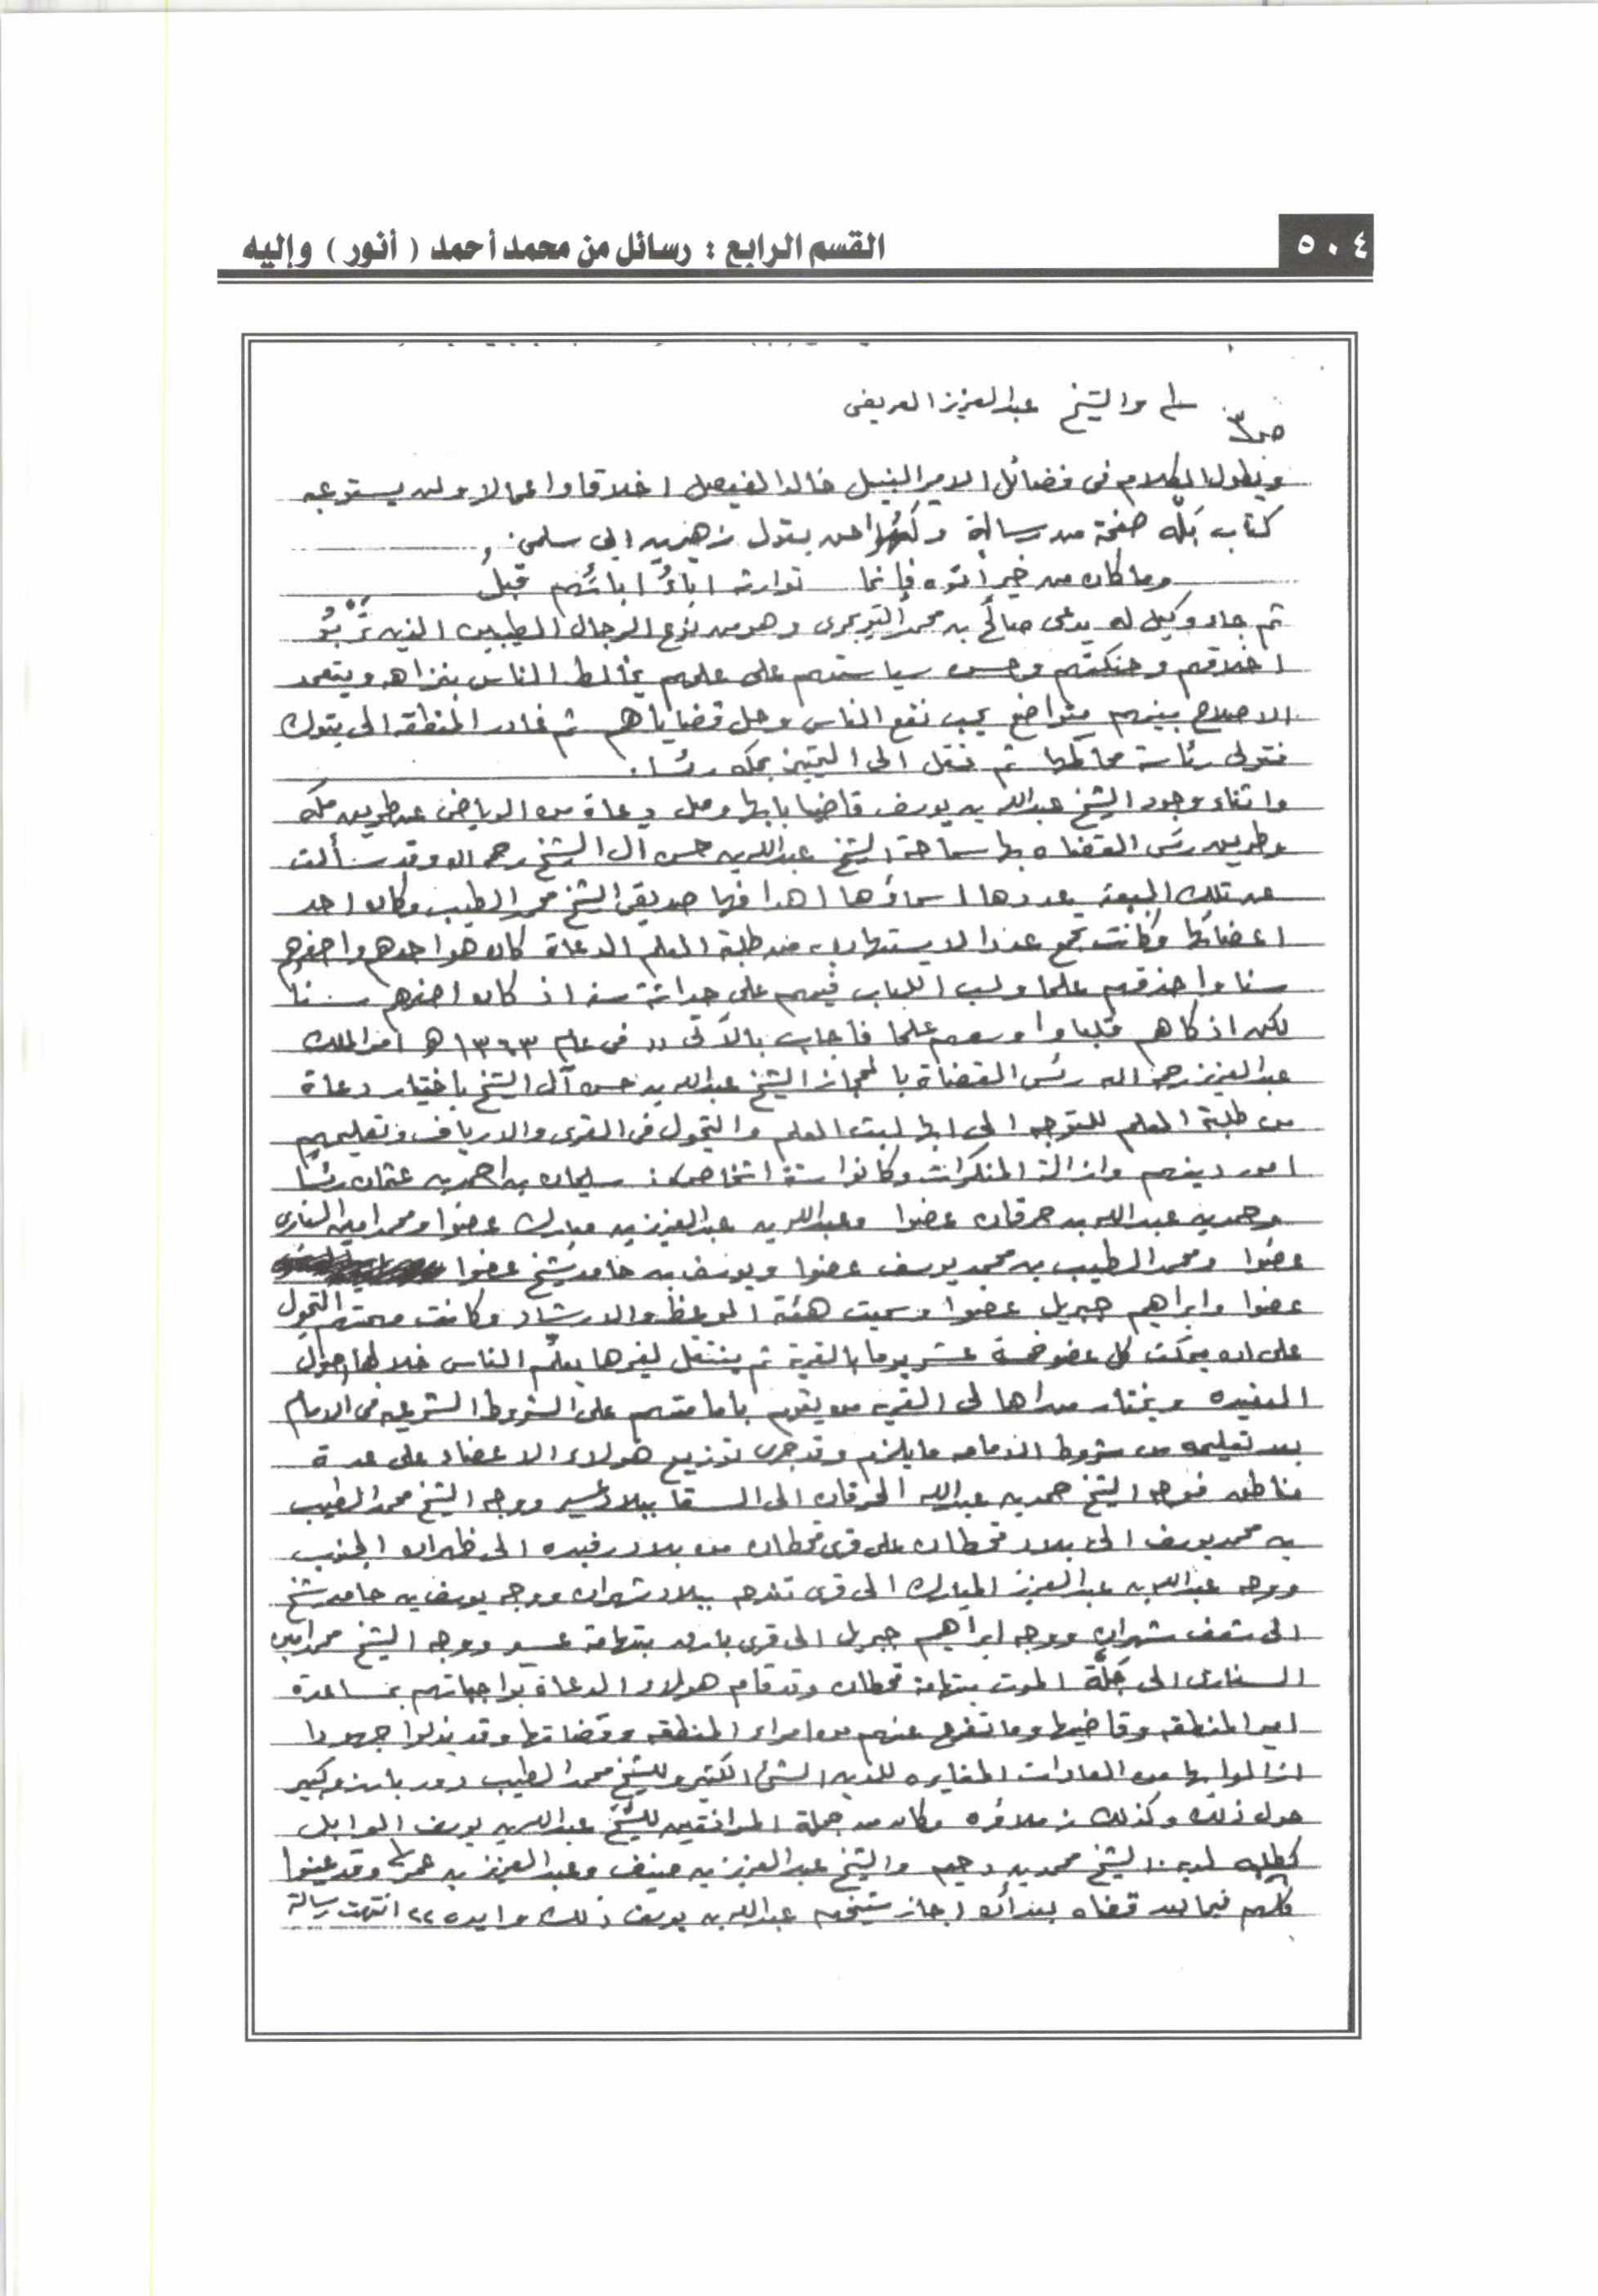 ٥٠٤
القسم الرابع : رسائل من محمد أحمد ( أنور ) وإليه
والشيخ عبدالعزيز العريفى
ص٣
ويطول الكلام فى فضائل الامير النبيل خالد الفيصل اخلاقا واعمالا ولن يستوعبه
كتاب بَلْه صفحة من رسالة بقول زهير بن ابى سلمى :
وما كان من خير أتوه فإنما توارثه اباءُ ابائهم قبلُ
ثم جاء وكيل له يدعى صالح بن محمد التويجرى وهو من نوع الرجال الطيبين الذين تَرْبُو
اخلاقهم وحنكتهم وحسن سياستهم على علمهم يخالط الناس بنزاهه ويتعمد
الاصلاح بينهم متواضع يحب نفع الناس وحل قضاياهم ثم غادر المنطقه الى بتوك
فتولى رئاسة محاكمها ثم نقل الى التمييز بمكه رئسا .
واثناء وجود الشيخ عبدالله بن يوسف قاضيا بابها وصل دعاة من الرياض عن طريق مكه
وطريق رئس القضاه بها سماحة الشيخ عبدالله بن حسن ال الشيخ رحمه الله وقد سألت
عن تلك البعثة عددها اسماؤها اهدافها صديقى الشيخ محمد الطيب وكان احد
اعضائها وكانت تجمع عددا لا يستهان به من طلبة العلم الدعاة كان هو احدهم واصغرهم
سنا واحذقهم علما ولب اللباب فيهم على حداثة سنه اذ كان اصغرهم سنا
لكن اذكاهم قلبا واوسعهم علما فأجاب بالآتى ,, فى عام ١٣٦٣ هـ امر الملك
عبدالعزيز رحمه الله رئس القضاة بالحجاز الشيخ عبدالله بن حسن آل الشيخ باختيار دعاة
من طلبة العلم للتوجه الى ابها لبث العلم والتجول فى القرى والارياف وتعليمهم
امور دينهم وازالة المنكرات وكانوا ستة اشخاص : سليمان بن احمد بن عثمان رئسا
وحمد بن عبدالله بن حرقان عضوا وعبدالله بن عبدالعزيز بن مبارك عضوا ومحمد امين السنارى
عضوا ومحمد الطيب بن محمد يوسف عضوا ويوسف بن حامد شيخ عضوا
عضوا وابراهيم جبريل عضوا وسميت هئة الوعظ والارشاد وكانت مهمتهم التجول
على ان يمكث كل عضو خمسة عشر يوما بالقرية ثم ينتقل لغيرها يعلّم الناس خلالها اصول
العقيده ويختار من اهالى القريه من يقوم بامامتهم على الشروط الشرعيه فى الامام
بعد تعليمه من شروط الامامه ما يلزم وقد جرى توزيع هولاء الاعضاء على عدة
مناطق فوجه الشيخ حمد بن عبدالله الحرقان الى السقا ببلاد عسير ووجه الشيخ محمد الطيب
بن محمد يوسف الى بلاد قحطان على قرى قحطان من بلاد رفيده الى ظهران الجنوب
ووجه عبدالله بن عبدالعزيز المبارك الى قرى تندحه ببلاد شهران ووجه يوسف بن حامد شيخ
الى شعف شهران ووجه ابراهيم جبريل الى قرى بتهامة عسير ووجه الشيخ محمد امين
السنارى الى جَلَّة الموت بتهامة قحطان وقد قام هولاء الدعاة بواجباتهم بمساعدة
امير المنطقه وقاضيها وما تفرع عنهم من امراء المنطقه وقضاتها وقد بذلوا جهودا
ازالوا بها من العادات المغايره للدين الشئ الكثير وللشيخ محمد الطيب دور بارز وكبير
حول ذلك وكذلك زملاؤه وكان من جملة المرافقين للشيخ عبدالله بن يوسف الوابل
كطلبه لديه .. الشيخ محمد بن دحيم والشيخ عبدالعزيز بن منيف وعبدالعزيز بن عمر وقد عينوا
كلهم فيما بعد قضاه بعد أن اجاز شيخهم عبدالله بن يوسف ذلك وايده ،، انتهت رسالة